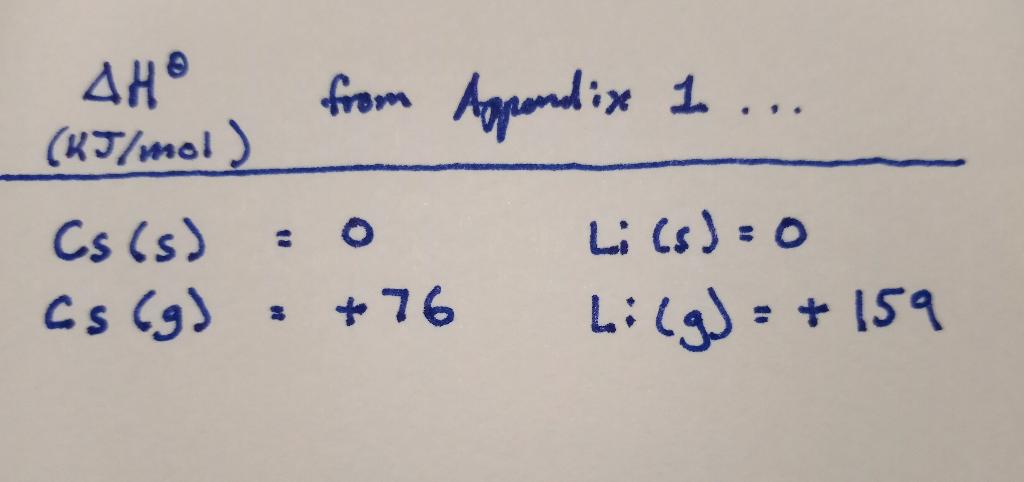 ΔH⊖ from Appendix 1 ...
(KJ/mol)
Cs (s) = 0 Li (s) = 0
Cs (g) = +76 Li (g) = + 159